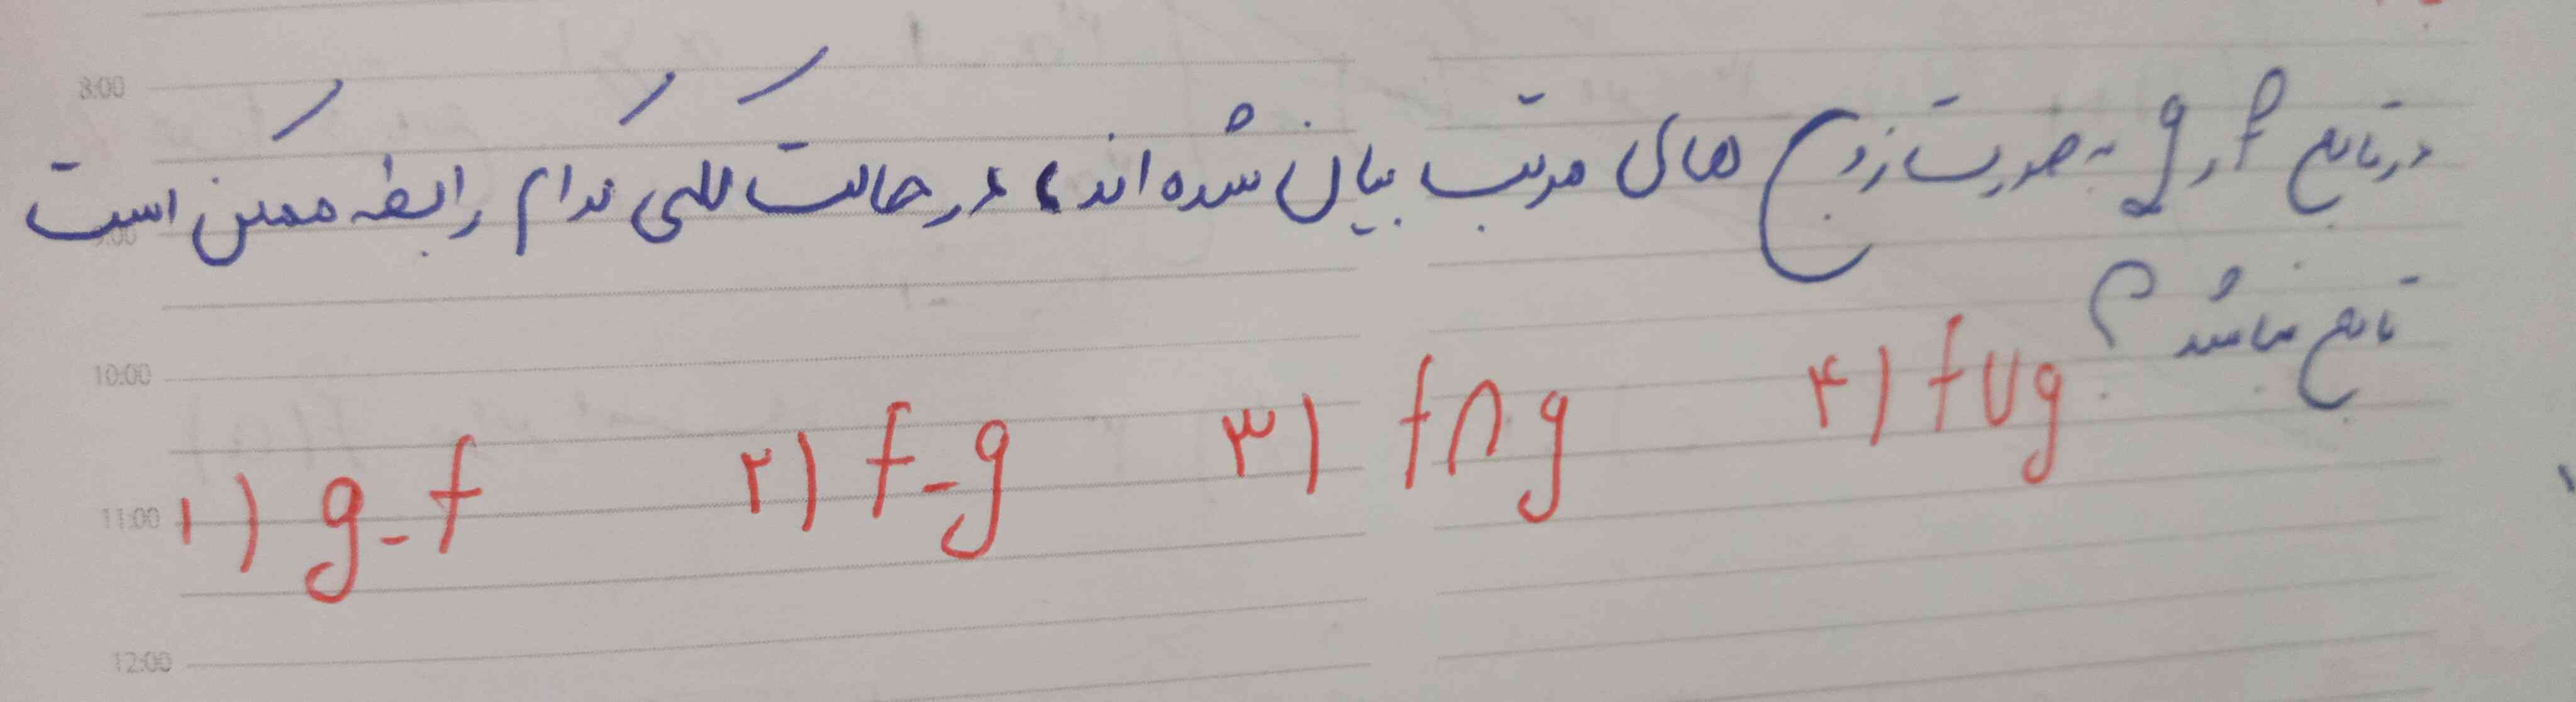 8:00
دو تابع f و g به صورت زوج های مرتب بیان شده اند، در حالت کلی کدام رابطه ممکن است
9:00
تابع نباشد؟
10:00
۱) g-f ۲) f-g ۳) f∩g ۴) f∪g
11:00
12:00